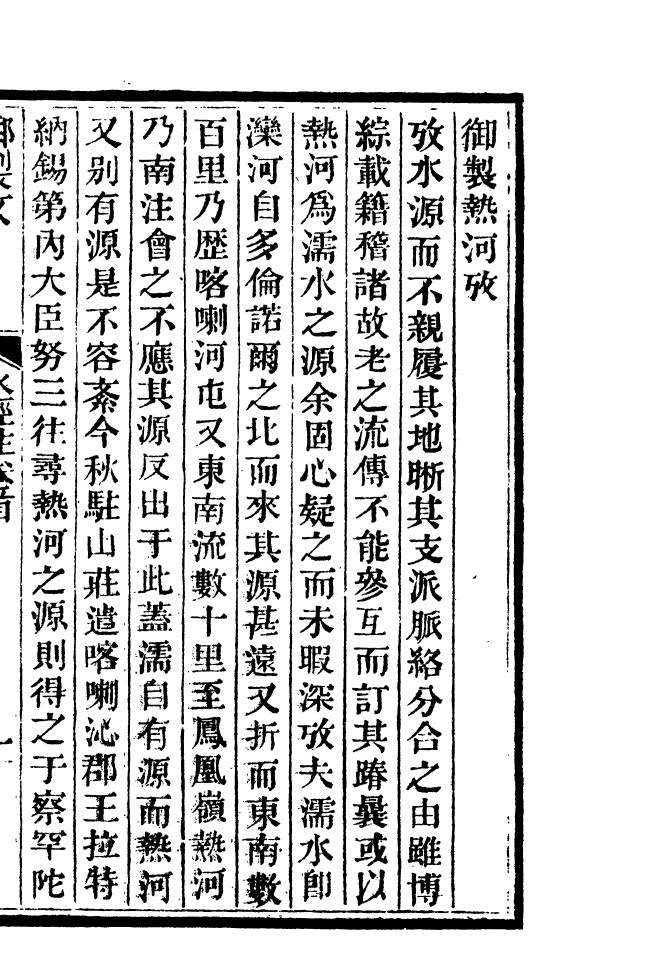 御製熱河攷
攷水源而不親履其地晰其支派脈絡分合之由雖博
綜載籍稽諸故老之流傳不能參互而訂其踳𩰚或以
熱河爲濡水之源余固心疑之而未暇深攷夫濡水卽
灤河自多倫諾爾之北而來其源甚遠又折而東南數
百里乃歷喀喇河屯又東南流數十里至鳳凰嶺熱河
乃南注會之不應其源反出于此蓋濡自有源而熱河
又別有源是不容紊今秋駐山莊遣喀喇沁郡王拉特
納錫第內大臣努三往尋熱河之源則得之于察罕陀
御製文
水經注卷首
一